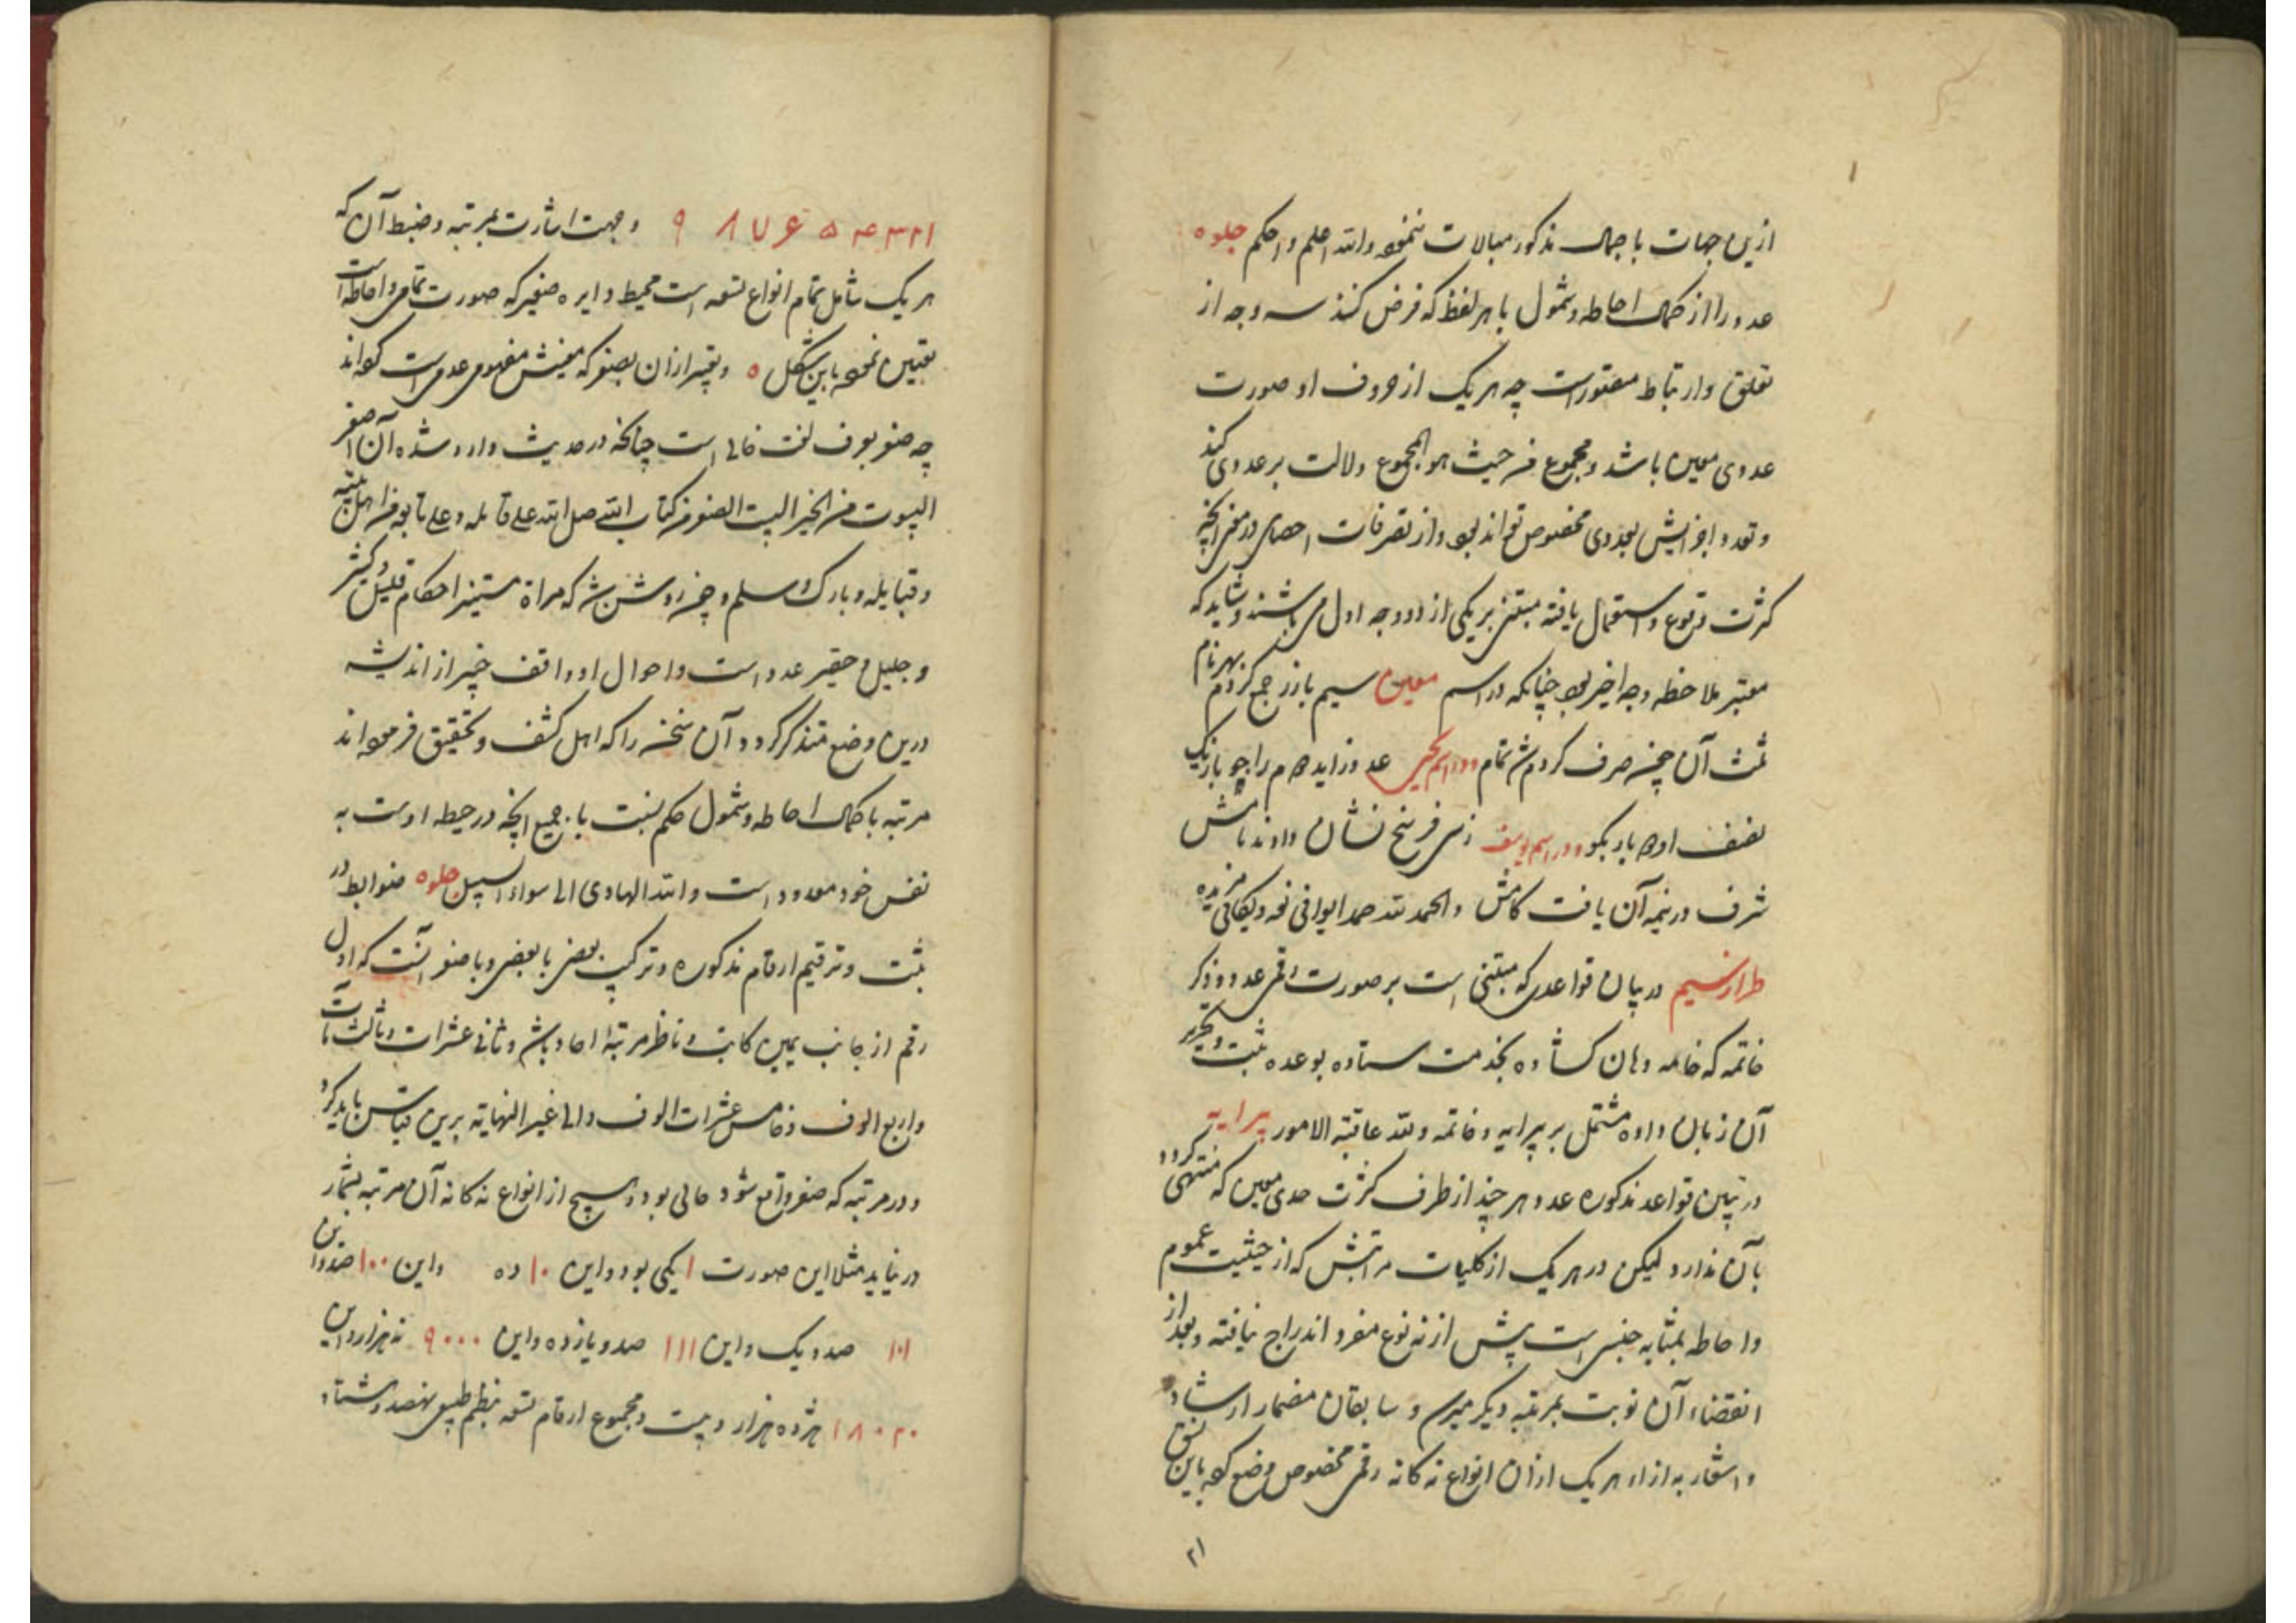 ازین جهات با جمال مذکور مبالات ننموده والله اعلم و احکم جلوه
عدد را از کمال احاطه و شمول با هر لفظ که فرض کنند سه وجه از
تعلق و ارتباط متصور است چه هر یک از حروف او صورت
عددی معین باشد و مجموع من حیث هو المجموع دلالت بر عددی کند
و تعدد اجزایش بعددی مخصوص تواند بود و از تصرفات احصای در معنی آنچه
کثرت وقوع و استعمال یافته مبتنی بر یکی از دو وجه اول می باشند و شاید که
معتبر ملاحظه وجه اخیر بود چنانکه در اسم معین سیم با زر جمع کردم بهر نام
ثلث آن چون صرف کردم شد تمام و در اسم یحیی عدد زاید هم را چو با زیک
نصف او ده باز بگو و در اسم یوسف زمن فرسخ نشان دادند نامش
شرف در نیمه آن یافت کامش والحمد لله حمدا یوافی نعمه و یکافی مزیده
طراز سیم در بیان قواعدی که مبتنی است بر صورت رقمی عدد و ذکر
خاتمه که خامه دهان کشاده بخدمت ستاده بوعده ثبت و تحریر
آن زبان داده مشتمل بر پیرایه و خاتمه ولله عاقبة الامور پیرایه
در تبیین قواعد مذکوره عدد هر چند از طرف کثرت حدی معین که منتهی گردد
بآن ندارد لیکن در هر یک از کلیات مراتبش که از حیثیت عموم
و احاطه بمثابه جنس است بیش از نه نوع مفرد اندراج نیافته و بعد از
انقضاء آن نوبت بمرتبه دیگر میرسد و سابقان مضمار ارشاد
و اشعار به ازاء هر یک از آن انواع نه کانه رقمی مخصوص وضع کرده باین نسق
۲۱
۱ ۲ ۳ ۴ ۵ ۶ ۷ ۸ ۹ و جهت اشارت بمرتبه و ضبط آن که
هر یک شامل تمام انواع تسعه است محیط دایره صغیر که صورت تمامی و احاطه است
تعیین نموده باین شکل ٥ و تعبیر از آن بصفر که معنیش مفهومی عدمی است کرده اند
چه صفر بعرف لغت خالی است چنانچه در حدیث وارد شده ان اصفر
البیوت من الخیر البیت الصفر من کتاب الله صلی الله علی قائله و علی تابعیه من اهل بیته
و قبایله و بارک و سلم و چون روشن شد که مرآة مستنیر احکام قلیل و کثیر
و جلیل و حقیر عدد است و احوال او واقف خبیر از اندیشه
درین وضع متذکر گردد آن سخن را که اهل کشف و تحقیق فرموده اند
مرتبه با کمال احاطه و شمول حکم نسبت با جمیع آنچه در حیطه اوست به
نفس خود معدود است والله الهادی الی سواء السبیل جلوه ضوابط در
ثبت و ترقیم ارقام مذکوره و ترکیب بعضی با بعضی و با صفر آنست که اول
رقم از جانب یمین کاتب و ناظر مرتبه احاد باشد و ثانی عشرات و ثالث مآت
و رابع الوف و خامس عشرات الوف و الی غیر النهایة برین قیاس باید کرد
و در مرتبه که صفر واقع شود خالی بود و هیچ از انواع نه کانه آن مرتبه بشمار
در نیاید مثلا این صورت ۱ یکی بود و این ۱۰ ده و این ۱۰۰ صد و این
۱۰۱ صد و یک و این ۱۱۱ صد و یازده و این ۹۰۰۰ نه هزار و این
۱۸۰۲۰ هژده هزار و بیست و مجموع ارقام تسعه بنظم طبیعی نهصد و هشتاد